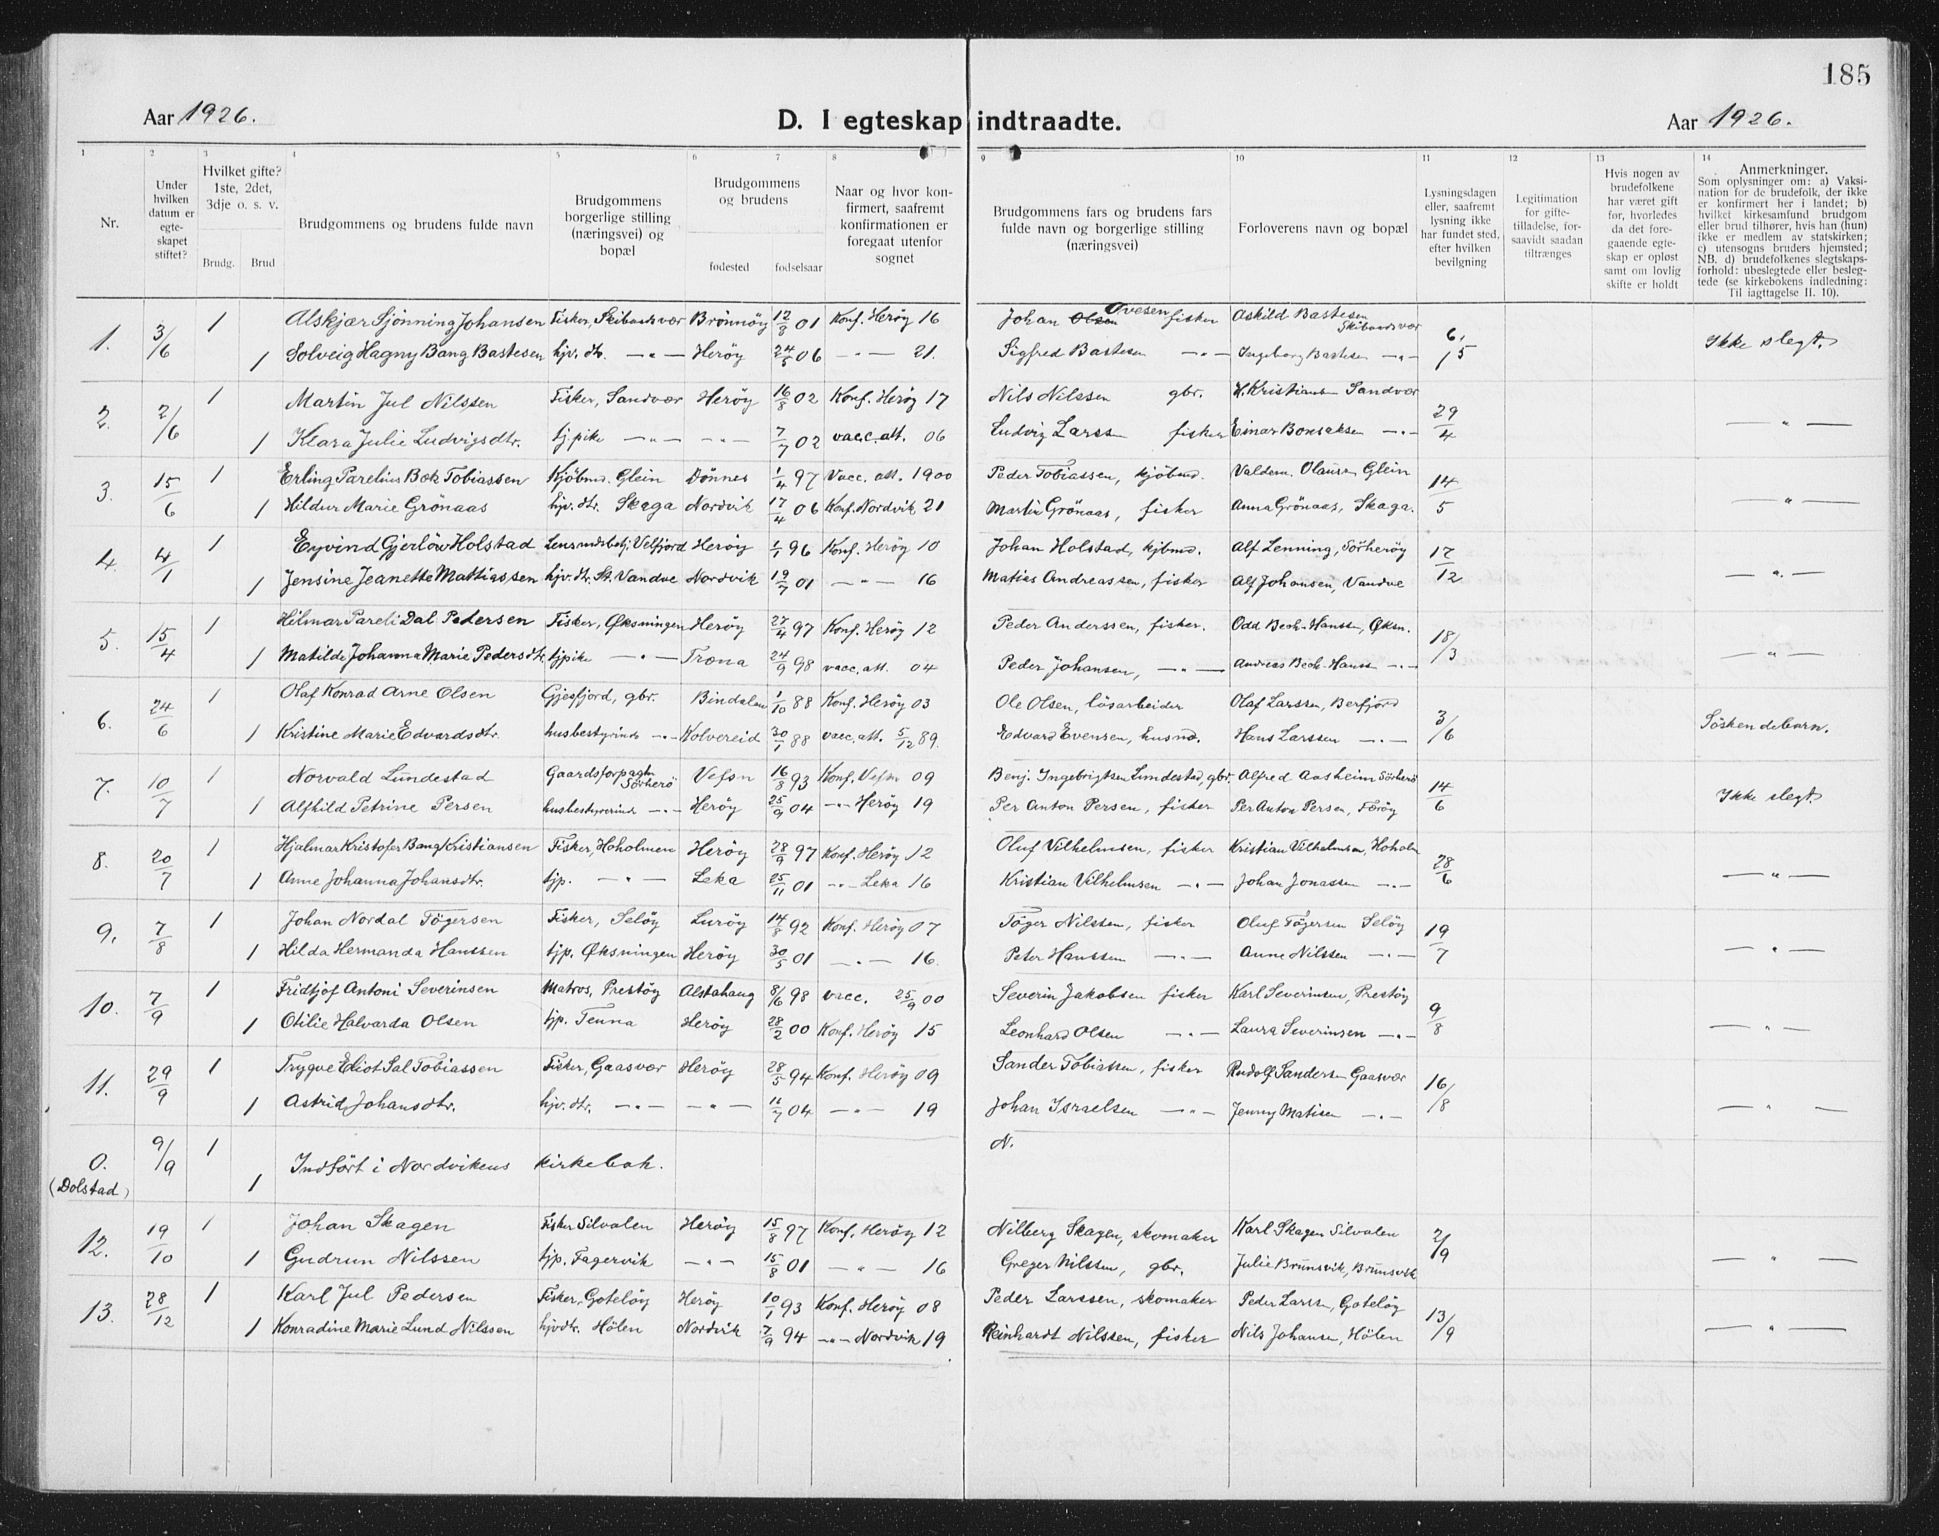 185
Aar 1926.
D. I egteskap indtraadte.
Aar 1926.
1 2 3 4 5 6 7 8 9 10 11 12 13 14
Nr.
Under hvilken datum er egteskapet stiftet?
Hvilket gifte? 1ste, 2det, 3dje o. s. v.
Brudg. Brud
Brudgommens og brudens fulde navn
Brudgommens borgerlige stilling (næringsvei) og bopæl
Brudgommens og brudens
fødested fødselsaar
Naar og hvor konfirmert, saafremt konfirmationen er foregaat utenfor sognet
Brudgommens fars og brudens fars fulde navn og borgerlige stilling (næringsvei)
Forloverens navn og bopæl
Lysningsdagen eller, saafremt lysning ikke har fundet sted, efter hvilken bevilgning
Legitimation for giftetilladelse, forsaavidt saadan tiltrænges
Hvis nogen av brudefolkene har været gift før, hvorledes da det foregaaende egteskap er opløst samt om lovlig skifte er holdt
Anmerkninger.
Som oplysninger om: a) Vaksination for de brudefolk, der ikke er konfirmert her i landet; b) hvilket kirkesamfund brudgom eller brud tilhører, hvis han (hun) ikke er medlem av statskirken; c) utensogns bruders hjemsted; NB. d) brudefolkenes slegtskapsforhold: ubeslegtede eller beslegtede (se kirkebokens indledning: Til iagttagelse II. 10).
1. 3/6 1 Alskjær Sjønning Johansen Fisker, Skibaadsvær Brønnøy 12/8 01 Konf. Herøy 16 Johan Olsen Ovesen fisker Askild Bastesen Skibaadsvær 6. Ikke slegt.
1 Solveig Hagny Bang Bastesen hjv. dtr. —"— Herøy 24/5 06 —"— 21. Sigfred Bastesen —"— Ingeborg Bastesen —"— /5
2. 2/6 1 Martin Jul Nilssen Fisker, Sandvær Herøy 16/8 02 Konf. Herøy 17 Nils Nilssen gbr. H. Kristiansen Sandvær 29/4 —"—
1 Klara Julie Ludvigsdtr. tj. pike —"— —"— 7/7 02 vacc. att. 06 Ludvig Larssen fisker Einar Bonsaksen —"—
3. 15/6 1 Erling Parelius Bek Tobiassen Kjøbmd. Glein Dønnes 1/4 97 Vacc. att. 1900 Peder Tobiassen, kjøbmd. Valdem. Olausen Glein 14/5 —"—
1 Hildur Marie Grønaas hjv. dtr. Skaga Nordvik 17/4 06 Konf. Nordvik 21 Martin Grønaas, fisker Anna Grønaas, Skaga.
4. 4/1 1 Eyvind Gjerløw Holstad Lensmdsbetj. Velfjord Herøy 1/1 96 Konf. Herøy 10 Johan Holstad, kjbmd. Alf Lenning, Sørherøy 17/12 —"—
1 Jensine Jeanette Mattiassen hjv. dtr. St. Vandve Nordvik 19/7 01 —"— 16 Matias Andreassen, fisker Alf Johansen, Vandve
5. 15/4 1 Hilmar Pareli Dal Pedersen Fisker, Øksningen Herøy 27/4 97 Konf. Herøy 12 Peder Anderssen, fisker. Odd Bech-Hanssen, Øksn. 18/3 —"—
1 Matilde Johanna Marie Pedersdtr. tjpike —"— Træna 24/9 98 vacc. att. 04 Peder Johansen, —"— Andreas Bech-Hanss —"—
6. 24/6 1 Olaf Konrad Arne Olsen Gjesfjord, gbr. Bindalen 1/10 88 Konf. Herøy 03 Ole Olsen, løsarbeider Olaf Larssen, Berfjord 3/6 Søskendebarn.
1 Kristine Marie Edvardsdtr. husbestyrinde —"— Kolvereid 30/1 88 vacc. att. 5/12 89. Edvard Evensen, husmd. Hans Larssen —"—
7. 10/7 1 Norvald Lundestad Gaardsforpagter Sørherø Vefsn 16/8 93 Konf. Vefsn 09 Benj. Ingebrigtsen Lundestad, gbr. Alfred Aasheim Sørherø 14/6 Ikke slegt.
1 Alfhild Petrine Persen husbestyrerinde —"— Herøy 25/9 04 —"— Herøy 19 Per Anton Persen, fisker Per Anton Persen, Færøy
8. 20/7 1 Hjalmar Kristofer Bang Kristiansen Fisker, Hoholmen Herøy 28/9 97 Konf. Herøy 12 Oluf Vilhelmsen, fisker Kristian Vilhelmsen, Hoholm 28/6 —"—
1 Anne Johanna Johansdtr. tjp. —"— Leka 25/11 01 —"— Leka 16 Kristian Vilhelmsen —"— Johan Jonassen —"—
9. 7/8 1 Johan Nordal Tøgersen Fisker, Seløy Lurøy 14/8 92 Konf. Herøy 07 Tøger Nilssen, fisker Oluf Tøgersen Seløy 19/7 —"—
1 Hilda Hermanda Hanssen tjp. Øksningen Herøy 30/5 01 —"— 16. Peter Hanssen —"— Anne Nilssen —"—
10. 7/9 1 Fridtjof Antoni Severinsen Matros, Prestøy Alstahaug 8/6 98 vacc. 25/9 00 Severin Jakobsen fisker Karl Severinsen, Prestøy 9/8 —"—
1 Otilie Halvarda Olsen tjp. Tenna Herøy 28/2 00 Konf. Herøy 15 Leonhard Olsen —"— Laura Severinsen —"—
11. 29/9 1 Trygve Eliot Sal Tobiassen Fisker, Gaasvær Herøy 28/5 94 Konf. Herøy 09 Sander Tobiassen, fisker Rudolf Sandersen Gaasvær 16/8 —"—
1 Astrid Johansdtr. hjv. dtr. —"— —"— 11/7 04 —"— 19 Johan Israelsen —"— Jenny Matisen —"—
0. (Dolstad) 9/9 1 N.
1 Indført i Nordvikens kirkebok.
12. 19/10 1 Johan Skagen Fisker Silvalen Herøy 15/8 97 Konf. Herøy 12 Nilberg Skagen, skomaker Karl Skagen Silvalen 2/9 —"—
1 Gudrun Nilssen tjp. Fagervik —"— 15/8 01 —"— 16 Greger Nilssen, gbr. Julie Brunsvik, Brunsvik
13. 28/12 1 Karl Jul Pedersen Fisker, Goteløy Herøy 10/1 93 Konf. Herøy 08 Peder Larssen, skomaker Peder Larssen, Goteløy 13/9 —"—
1 Konradine Marie Lund Nilssen hjvdtr. Hølen Nordvik 7/9 94 —"— Nordvik 19 Reinhardt Nilssen, fisker Nils Johansen, Hølen